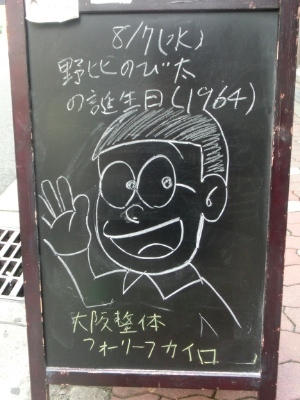 8/7(水)
野比のび太
の誕生日(1964)
大阪整体
フォーリーフカイロ